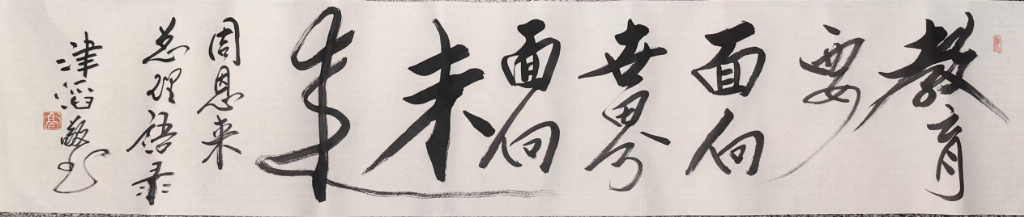 教育
要
面向
世界
面向
未
来
周恩来
总理语录
津滔敬书